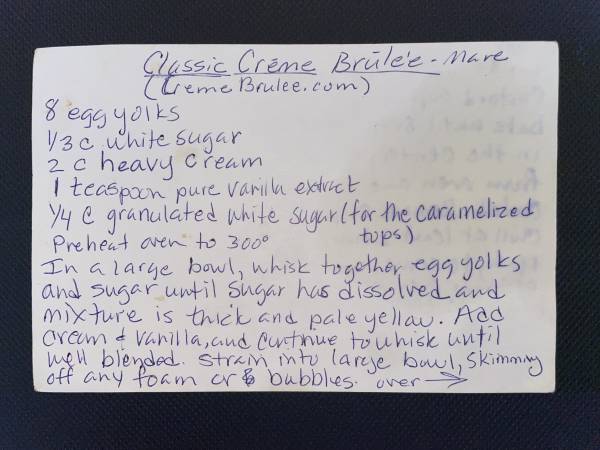 Classic Créme Brûlée - Mare
(CremeBrulee.com)
8 egg yolks
1/3 c white sugar
2 c heavy cream
1 teaspoon pure vanilla extract
1/4 c granulated white sugar (for the caramelized
Preheat oven to 300° tops)
In a large bowl, whisk together egg yolks
and sugar until sugar has dissolved and
mixture is thick and pale yellow. Add
cream & vanilla, and continue to whisk until
well blended. Strain into large bowl, skimming
off any foam or bubbles. over →